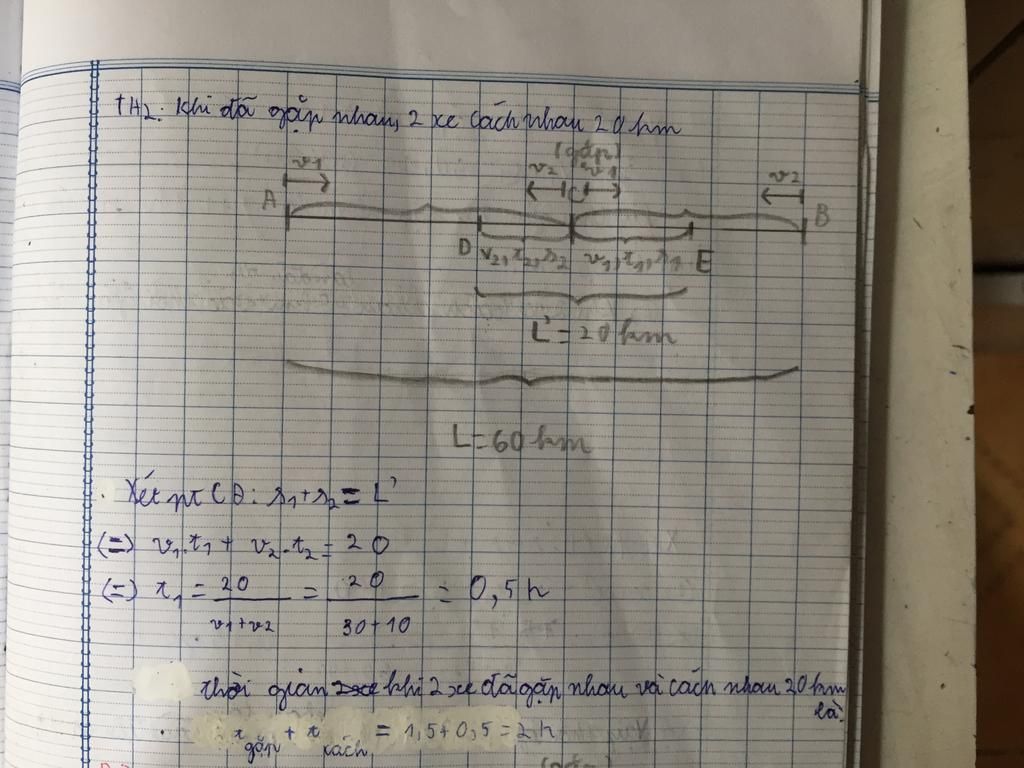 TH2: Khi đã gặp nhau, 2 xe cách nhau 20 km
(gặp)
v1 v2 v1 v2
A C B
D v2, t2, s2 v1, t1, s1 E
L' = 20 km
L = 60 km
Xét pt CĐ: s1 + s2 = L'
(=) v1.t1 + v2.t2 = 20
(=) t1 = 20 / v1+v2 = 20 / 30+10 = 0,5 h
thời gian khi 2 xe đã gặp nhau và cách nhau 20 km là:
t gặp + t cách = 1,5 + 0,5 = 2 h